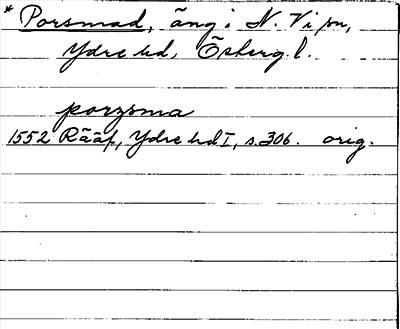 * Porsmad, äng i N. Vi sn,
Ydre hd, Österg l.
porzsma
1552 Rääf, Ydre hd I, s. 306. orig.